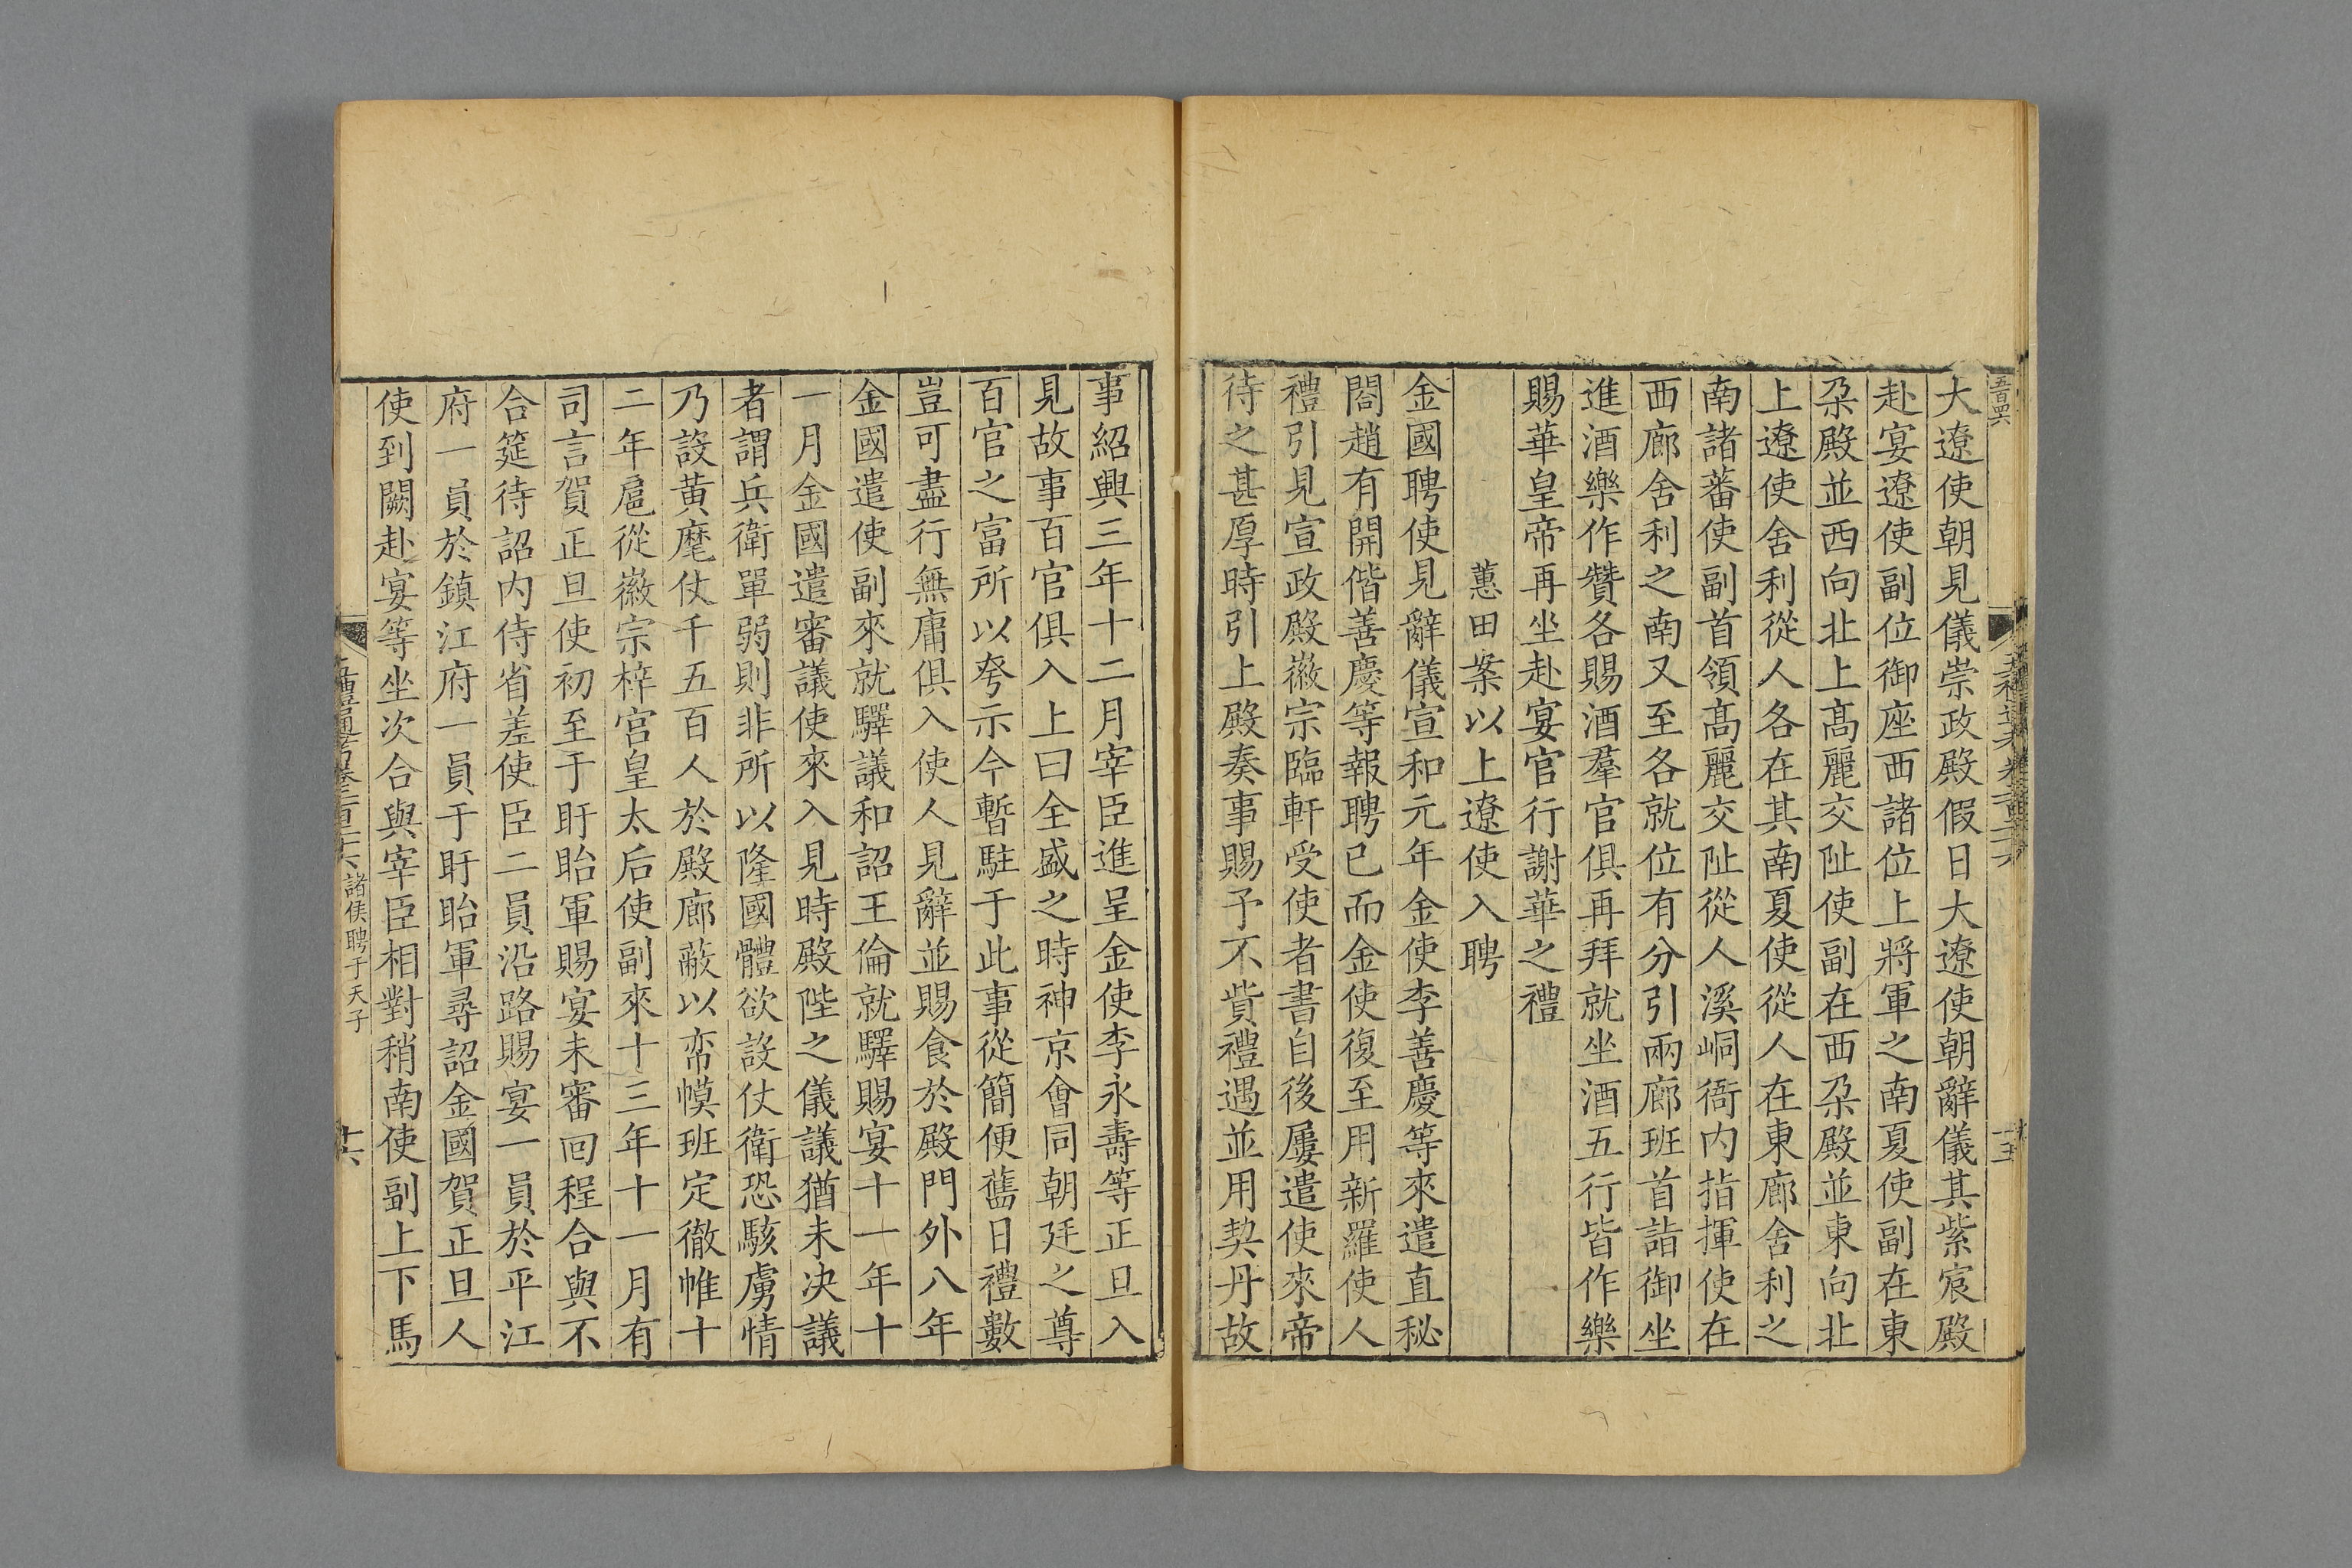 大遼使朝見儀崇政殿假日大遼使朝辭儀其紫宸殿
赴宴遼使副位御座西諸位上將軍之南夏使副在東
朶殿並西向北上髙麗交阯使副在西朶殿並東向北
上遼使舍利從人各在其南夏使從人在東廊舍利之
南諸蕃使副首領髙麗交阯從人溪峒衙内指揮使在
西廊舍利之南又至各就位有分引兩廊班首詣御坐
進酒樂作贊各賜酒羣官俱再拜就坐酒五行皆作樂
賜華皇帝再坐赴宴官行謝華之禮
蕙田案以上遼使入聘
金國聘使見辭儀宣和元年金使李善慶等來遣直秘
閣趙有開偕善慶等報聘已而金使復至用新羅使人
禮引見宣政殿徽宗臨軒受使者書自後屢遣使來帝
待之甚厚時引上殿奏事賜予不貲禮遇並用契丹故
事紹興三年十二月宰臣進呈金使李永壽等正旦入
見故事百官俱入上曰全盛之時神京會同朝廷之尊
百官之富所以夸示今暫駐于此事從簡便舊日禮數
豈可盡行無庸俱入使人見辭並賜食於殿門外八年
金國遣使副來就驛議和詔王倫就驛賜宴十一年十
一月金國遣審議使來入見時殿陛之儀議猶未決議
者謂兵衛單弱則非所以隆國體欲設仗衛恐駭虜情
乃設黄麾仗千五百人於殿廊蔽以帟幙班定徹帷十
二年扈從徽宗梓宮皇太后使副來十三年十一月有
司言賀正旦使初至于盱眙軍賜宴未審回程合與不
合筵待詔内侍省差使臣二員沿路賜宴一員於平江
府一員於鎮江府一員于盱眙軍尋詔金國賀正旦人
使到闕赴宴等坐次合與宰臣相對稍南使副上下馬
諸侯聘于天子
十六